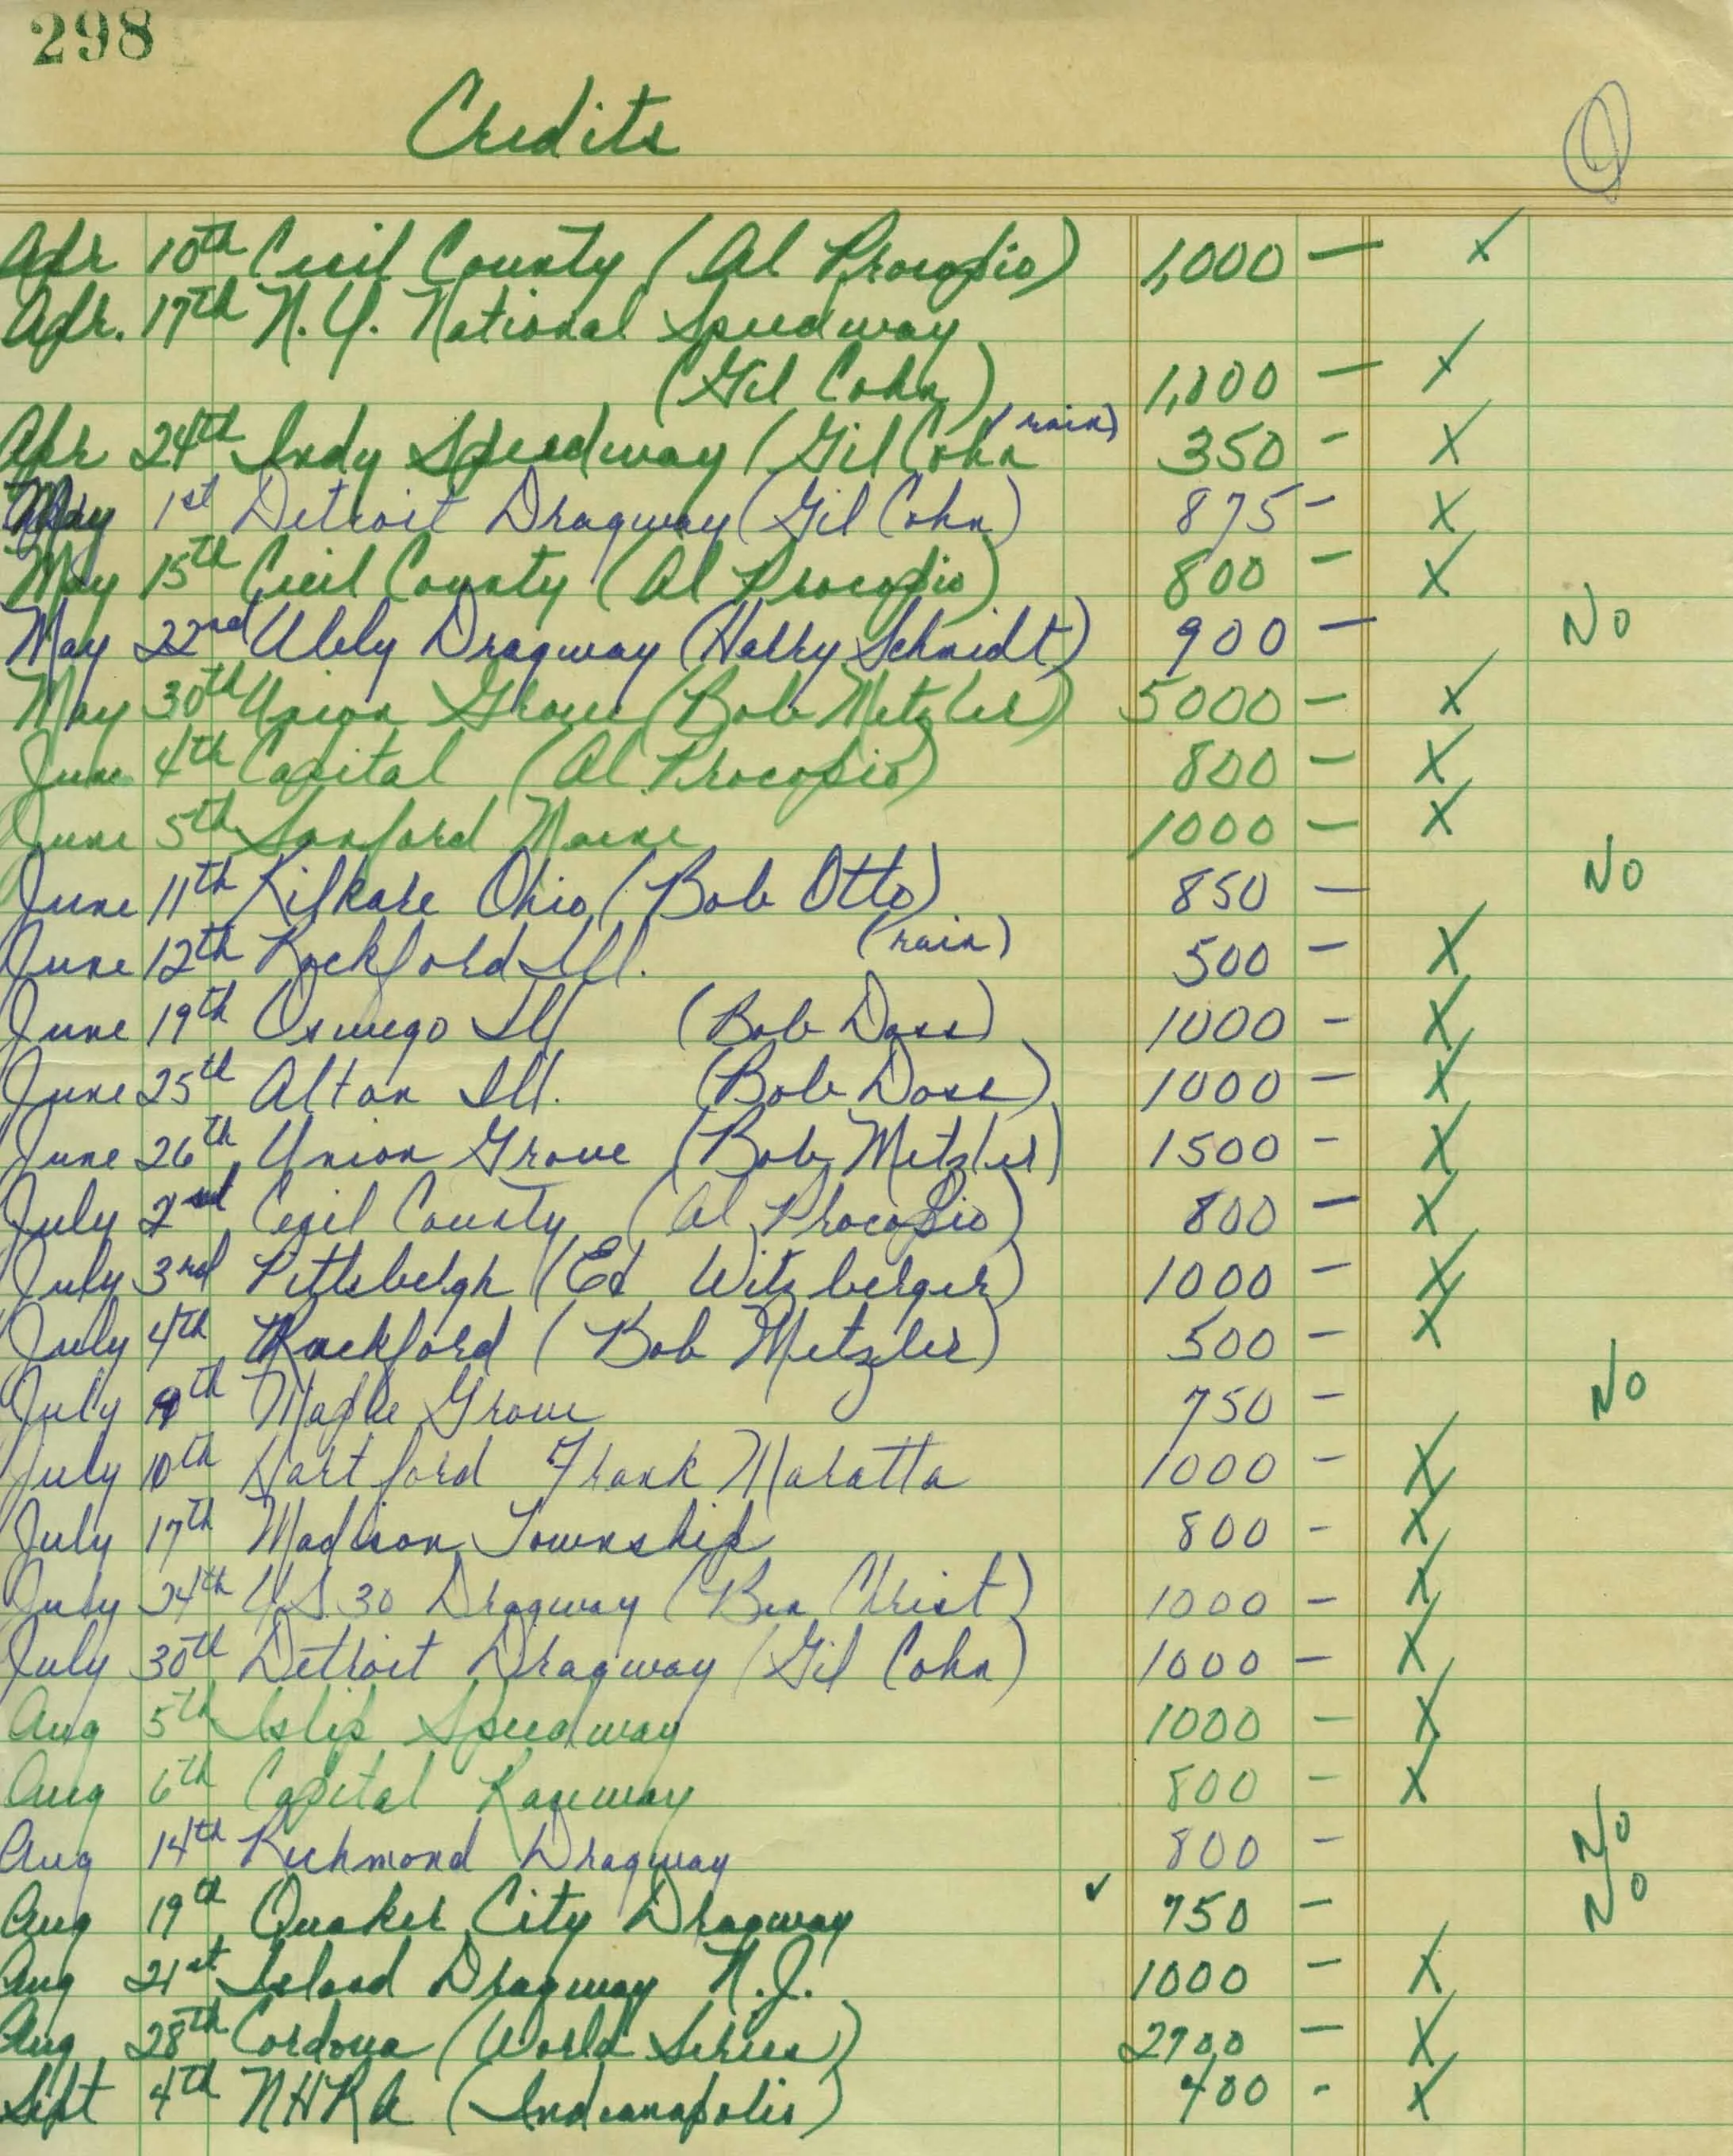 298
Credits
Apr 10th Cecil County (Al Procopio) 1,000 — X
Apr. 17th N.Y. National Speedway
(Gil Cohn) 1,000 — X
Apr 24th Indy Speedway (Gil Cohn (rain) 350 - X
May 1st Detroit Dragway (Gil Cohn) 875 - X
May 15th Cecil County (Al Procopio) 800 - X
May 22nd Ubly Dragway (Harry Schmidt) 900 — No
May 30th Union Grove (Bob Metzler) 5000 - X
June 4th Capital (Al Procopio) 800 - X
June 5th Sanford Maine 1000 — X
June 11th Kilkare Ohio (Bob Otto) 850 — No
June 12th Rockford Ill. (rain) 500 - X
June 19th Oswego Ill (Bob Doss) 1000 - X
June 25th Alton Ill. (Bob Doss) 1000 - X
June 26th Union Grove (Bob Metzler) 1500 - X
July 2nd Cecil County (Al Procopio) 800 — X
July 3rd Pittsbergh (Ed Witzberger) 1000 - X
July 4th Rockford (Bob Metzler) 500 - X
July 9th Maple Grove 750 - No
July 10th Hartford Frank Maratta 1000 - X
July 17th Madison Township 800 - X
July 24th US 30 Dragway (Ben Christ) 1000 - X
July 30th Detroit Dragway (Gil Cohn) 1000 — X
Aug 5th Islip Speedway 1000 - X
Aug 6th Capital Raceway 800 - X
Aug 14th Richmond Dragway 800 - No
Aug 19th Quaker City Dragway ✓ 750 - No
Aug 21st Island Dragway N.J. 1000 - X
Aug 28th Cordova (World Series) 2700 — X
Sept 4th NHRA (Indianapolis) 400 - X